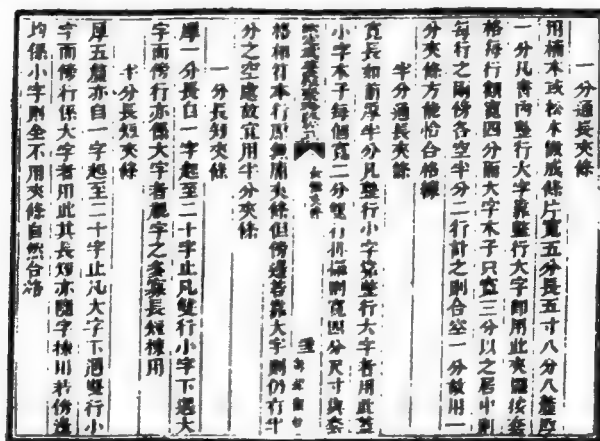 一分通長夾條
用楠木或松木做成條片寬五分長五寸八分八釐厚
一分凡書內整行大字靠整行大字卽用此夾條按套
格每行額寬四分而大字木子只寬三分以之居中則
每行之兩傍各空半分二行計之則合空一分故用一
分夾條方能恰合格線
半分通長夾條
寬長如前厚半分凡整行小字靠整行大字者用此蓋
小字木子每個寬二分雙行擺則寬四分尺寸與套
格相符本行原無庸夾條但傍邊若靠大字則仍有半
分之空處故宜用半分夾條
一分長短夾條
厚一分長自一字起至二十字止凡雙行小字下遇大
字而傍行亦係大字者視字之多寡長短揀用
半分長短夾條
厚五釐亦自一字起至二十字止凡大字下遇雙行小
字而傍行係大字者用此其長短亦隨字揀用若傍邊
均係小字則全不用夾條自然合格